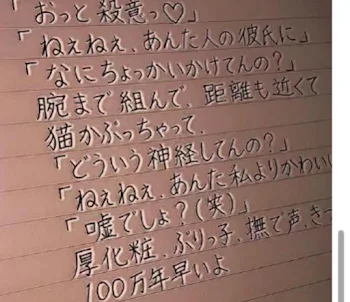 「おっと殺意っ♡」
「ねぇねぇ、あんた人の彼氏に」
「なにちょっかいかけてんの？」
腕まで組んで、距離も近くて
猫かぶっちゃって、
「どういう神経してんの？」
「ねぇねぇ、あんた私よりかわいい
「嘘でしょ？(笑)」
厚化粧、ぶりっ子、撫で声、きっ
100万年早いよ